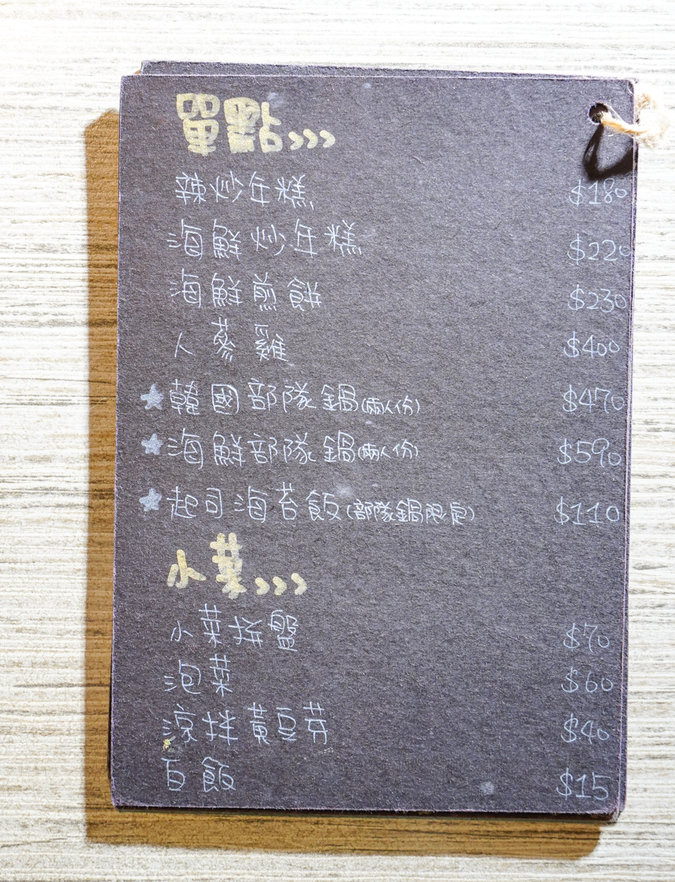 單點>>>
辣炒年糕 $180
海鮮炒年糕 $220
海鮮煎餅 $230
人蔘雞 $400
★韓國部隊鍋(兩人份) $470
★海鮮部隊鍋(兩人份) $590
★起司海苔飯(部隊鍋限定) $110
小菜>>>
小菜拼盤 $70
泡菜 $60
涼拌黃豆芽 $40
白飯 $15